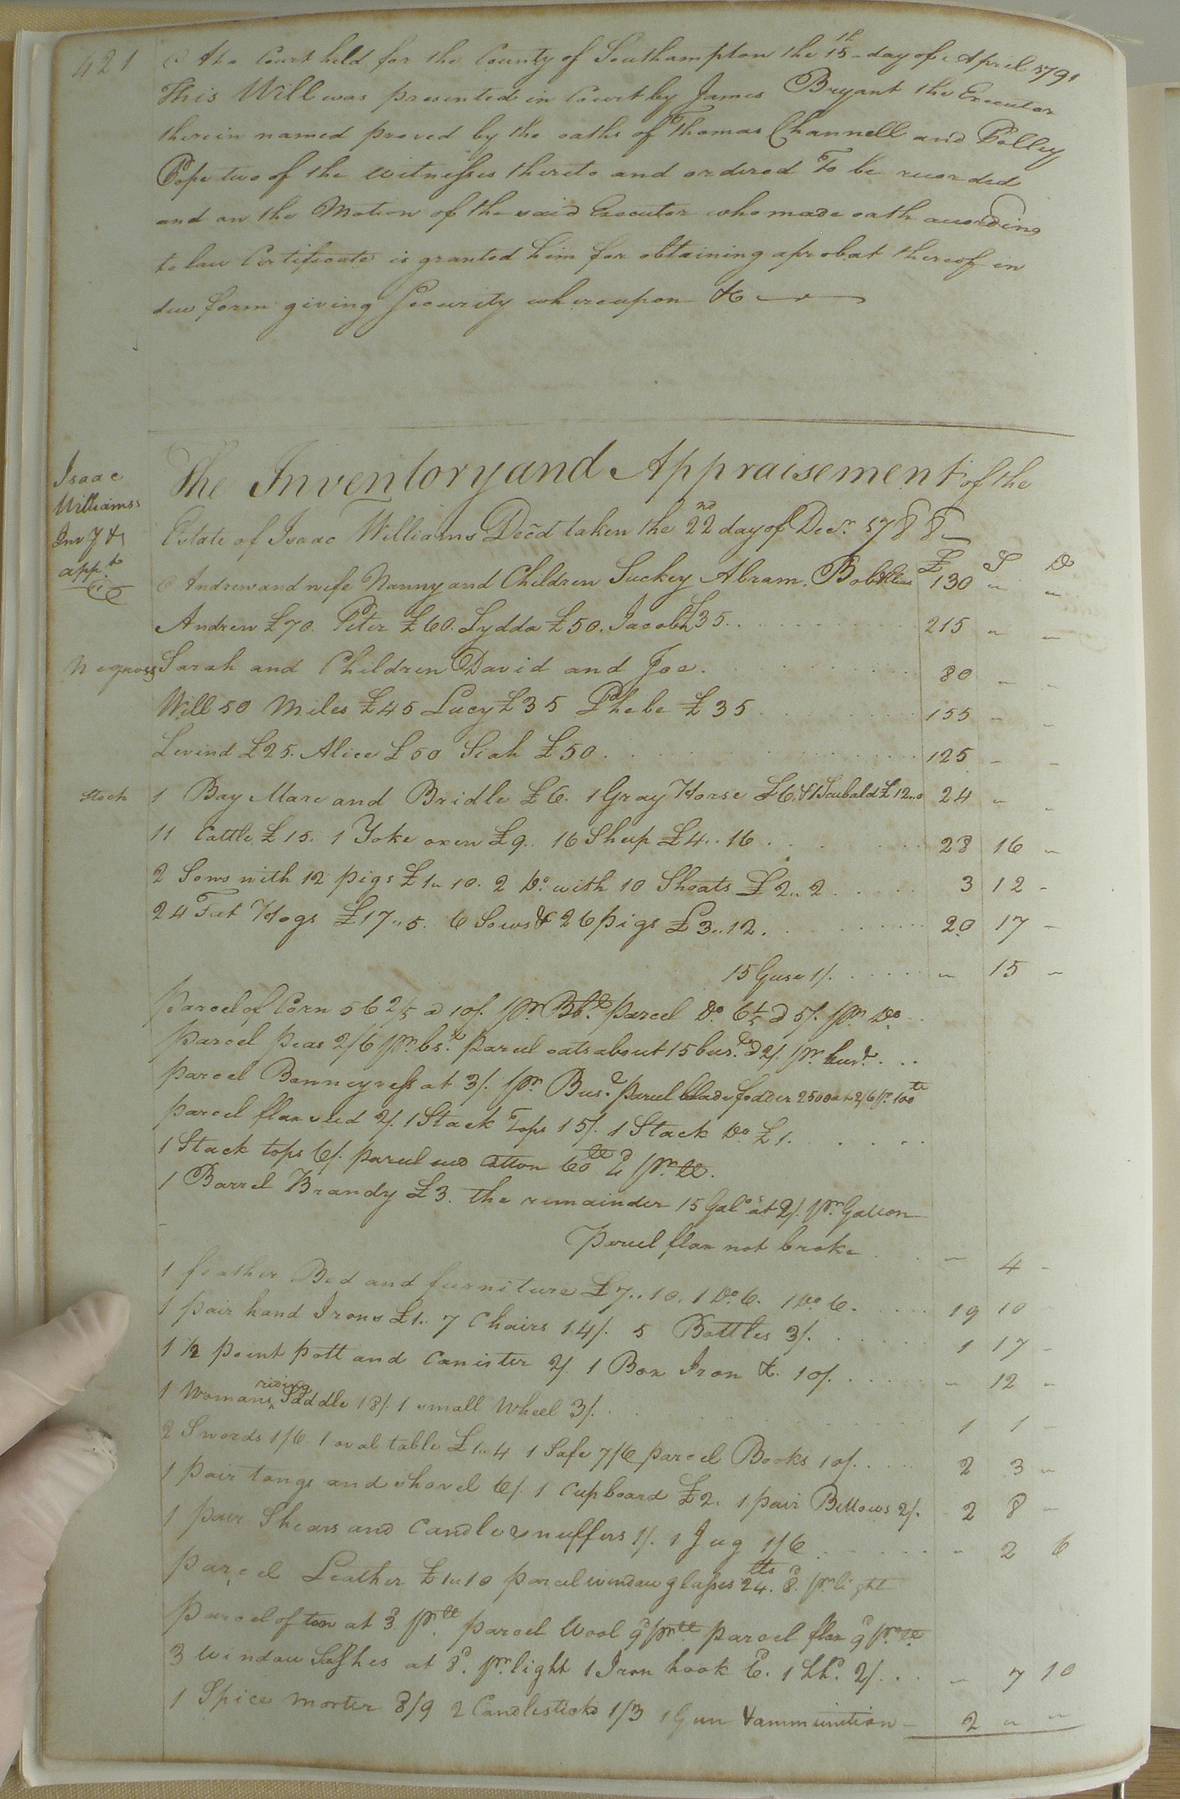 421
At a Court held for the County of Southampton the 15th day of April 1791
This Will was presented in Court by James Bryant the Executor
therein named proved by the oaths of Thomas Channell and Polley
Pope two of the witnesses thereto and ordered To be recorded
and on the Motion of the said Executor who made oath according
to law Certificate is granted him for obtaining a probat thereof in
due form giving Security whereupon &c
Isaac
Williams's
Inv.y &
app.t
The Inventory and Appraisement of the
Estate of Isaac Williams Decd taken the 22nd day of Decr. 1788
£ S D
Andrew and wife Nanny and Children Suckey Abram. Bob 130 " "
Andrew £70. Peter £60. Lydda £50. Jacob £35. 215 " "
Negroes Sarah and Children David and Joe. 80 " "
Will 50 Miles £45 Lucy £35 Phebe £35 155 " "
Levind £25. Alice £50 Siah £50. 125 " "
Stock 1 Bay Mare and Bridle £6. 1 Gray Horse £6. £12..0 24 " "
11 Cattle £15. 1 Yoke oxen £9. 16 Sheep £4..16 28 16 "
2 Sows with 12 pigs £1..10. 2 Do. with 10 Shoats £2..2 3 12 -
24 Fat Hogs £17..5. 6 Sows & 26 pigs £3..12. 20 17 -
15 Guse 1/. " 15 "
parcel of Corn 56 2/5 a 10/. pr. Bb. parcel Do. 6 1/5 a 5/. pr. Do.
parcel peas 2/6 pr. bs. parcel oats about 15 bus. a 2/. pr. bus.
parcel at 3/. pr. Bus. parcel blade fodder 2500 at 2/6 pr. 100
parcel flax seed 2/. 1 Stack Tops 15/. 1 Stack Do £1.
1 Stack tops 6/. parcel Cotton 60 pr.
1 Barrel Brandy £3. the remainder 15 Gals. at 2/. pr. Gallon
Parcel flax not broke " 4 -
1 feather Bed and furniture £7..10. 1 Do. 6. 1 Do 6. 19 10
1 pair hand Irons £1. 7 Chairs 14/. 5 Bottles 3/. 1 17 -
1 1/2 point pott and Canister 2/. 1 Box Iron &c. 10/. " 12 "
1 womans riding Saddle 18/. 1 small Wheel 3/. 1 1 -
2 Swords 1/6. 1 oval table £1..4 1 Safe 7/6 parcel Books 10/. 2 3 "
1 pair tongs and shovel 6/. 1 Cupboard £2. 1 pair Bellows 2/. 2 8 -
1 pair Shears and Candle snuffers 1/. 1 Jug 1/6 " 2 6
parcel Leather £1..10 parcel window glasses 24. 8d. pr. light
parcel of at 3 pr. lb parcel Wool 9d pr lb parcel flax 9d pr. lb
3 window Sashes at 8d. pr. light 1 Iron hook 6d. 2/. " 7 10
1 Spice morter 8/9 2 Candlesticks 1/3 1 Gun & ammunition 2 " "